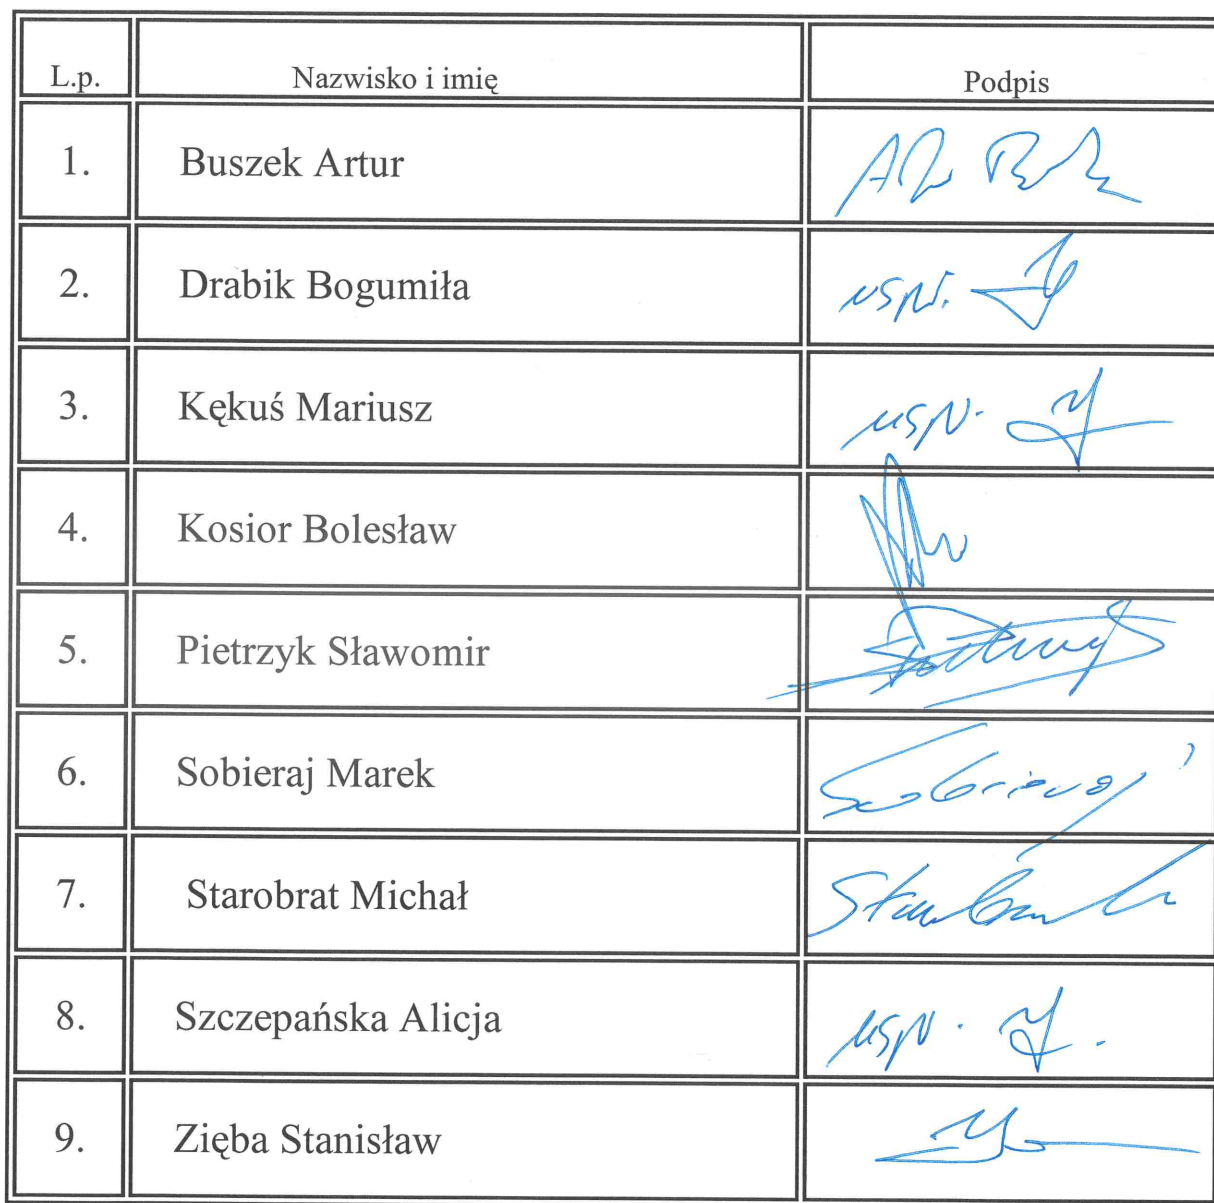 L.p. Nazwisko i imię Podpis
1. Buszek Artur
2. Drabik Bogumiła usp.
3. Kękuś Mariusz usp.
4. Kosior Bolesław
5. Pietrzyk Sławomir
6. Sobieraj Marek Sobieraj
7. Starobrat Michał
8. Szczepańska Alicja usp.
9. Zięba Stanisław